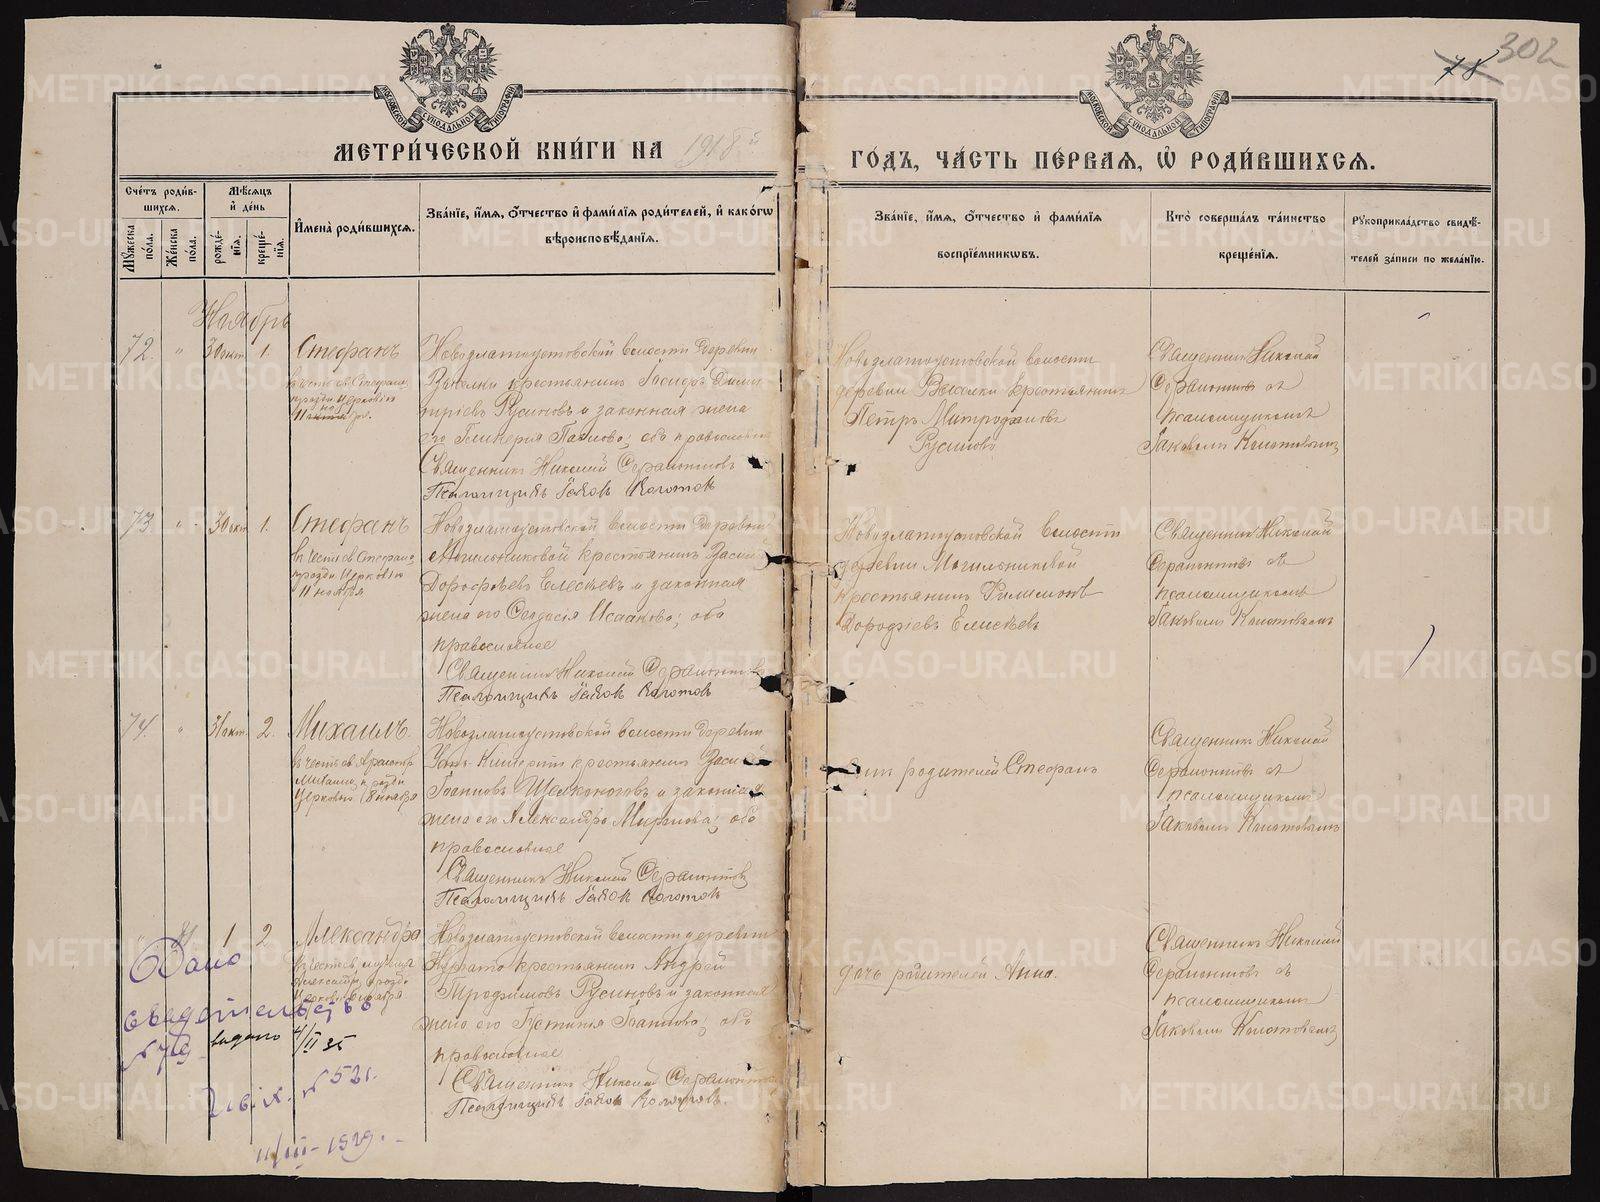 78 302
МОСКОВСКОЙ СѴНОДАЛЬНОЙ ТИПОГРАФІИ
МОСКОВСКОЙ СѴНОДАЛЬНОЙ ТИПОГРАФІИ
МЕТРИ́ЧЕСКОЙ КНИ́ГИ НА 1918й
ГО́ДЪ, ЧА́СТЬ ПЕ́РВАЯ, Ѡ҆ РОДИ́ВШИХСЯ.
Сче́тъ роди́в-
шихся.
Му́жеска по́ла.
Же́нска по́ла.
Мѣ́сяцъ
и҆ де́нь
рожде́нїя.
креще́нїя.
И҆мена̀ роди́вшихся.
Зва́нїе, и҆́мя, ѻ҆́тчество и҆ фами́лїя роди́телей, и҆ како́гѡ
вѣроисповѣ́данїя.
Зва́нїе, и҆́мя, ѻ҆́тчество и҆ фами́лїя
воспрїе́мникѡвъ.
Кто̀ соверша́лъ та́инство
креще́нїя.
Рꙋкоприкла́дство свидѣ́-
телей за́писи по жела́нїю.
Ноябрь
72. " 30 окт. 1. Стефанъ
въ честь св. Стефана,
праздн. Церковію
11 но
Новозлатоустовской волости деревни
крестьянинъ
Русиновъ и законная жена
его Павлова; оба православные
Священникъ Николай Серапіоновъ
Псаломщикъ Іаковъ Колотовъ
Новозлатоустовской волости
деревни Выселки крестьянинъ
Петръ Митрофановъ
Русиновъ
Священникъ Николай
Серапіоновъ съ
псаломщикомъ
Іаковомъ Колотовымъ
73. " 30 окт. 1. Стефанъ
въ честь св. Стефана,
праздн. Церковію
11 ноября
Новозлатоустовской волости деревни
Могильниковой крестьянинъ
Дорофѣевъ Елисѣевъ и законная
жена его Исаакова; оба
православные
Священникъ Николай Серапіоновъ
Псаломщикъ Іаковъ Колотовъ
Новозлатоустовской волости
деревни Могильниковой
крестьянинъ Филимонъ
Дорофѣевъ Елисѣевъ
Священникъ Николай
Серапіоновъ съ
псаломщикомъ
Іаковомъ Колотовымъ
74. " 31 окт. 2. Михаилъ.
въ честь св. Архистр.
Михаила, праздн.
Церковію 8 ноября
Новозлатоустовской волости деревни
крестьянинъ
Іоанновъ Щелконоговъ и законная
жена его Александра Миронова; оба
православные
Священникъ Николай Серапіоновъ
Псаломщикъ Іаковъ Колотовъ
сынъ родителей Стефанъ
Священникъ Николай
Серапіоновъ съ
псаломщикомъ
Іаковомъ Колотовымъ
1 2 Александра
въ честь св. мучен.
Александры, праздн.
Церковію 6 ноября
Новозлатоустовской волости деревни
крестьянинъ Андрей
Трофимовъ Русиновъ и законная
жена его Іустинія Іоаннова; оба
православные
Священникъ Николай Серапіоновъ
Псаломщикъ Іаковъ Колотовъ.
дочь родителей Анна.
Священникъ Николай
Серапіоновъ съ
псаломщикомъ
Іаковомъ Колотовымъ
Дано
свидетельство
выдано 4/II 35
№ 521.
11/III-1929.